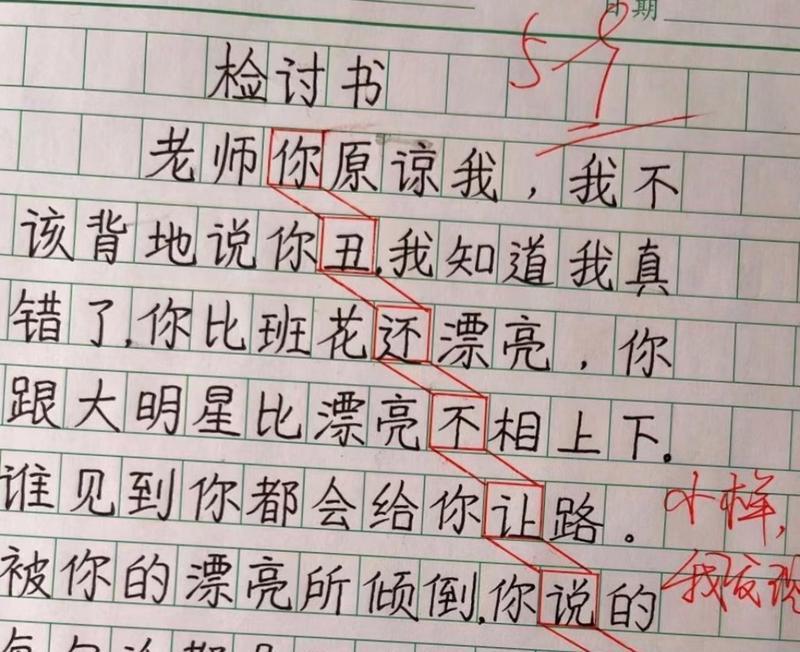 期
5分
检讨书
老师你原谅我，我不
该背地说你丑，我知道我真
错了，你比班花还漂亮，你
跟大明星比漂亮不相上下。
谁见到你都会给你让路。
小样，
被你的漂亮所倾倒，你说的
我发现